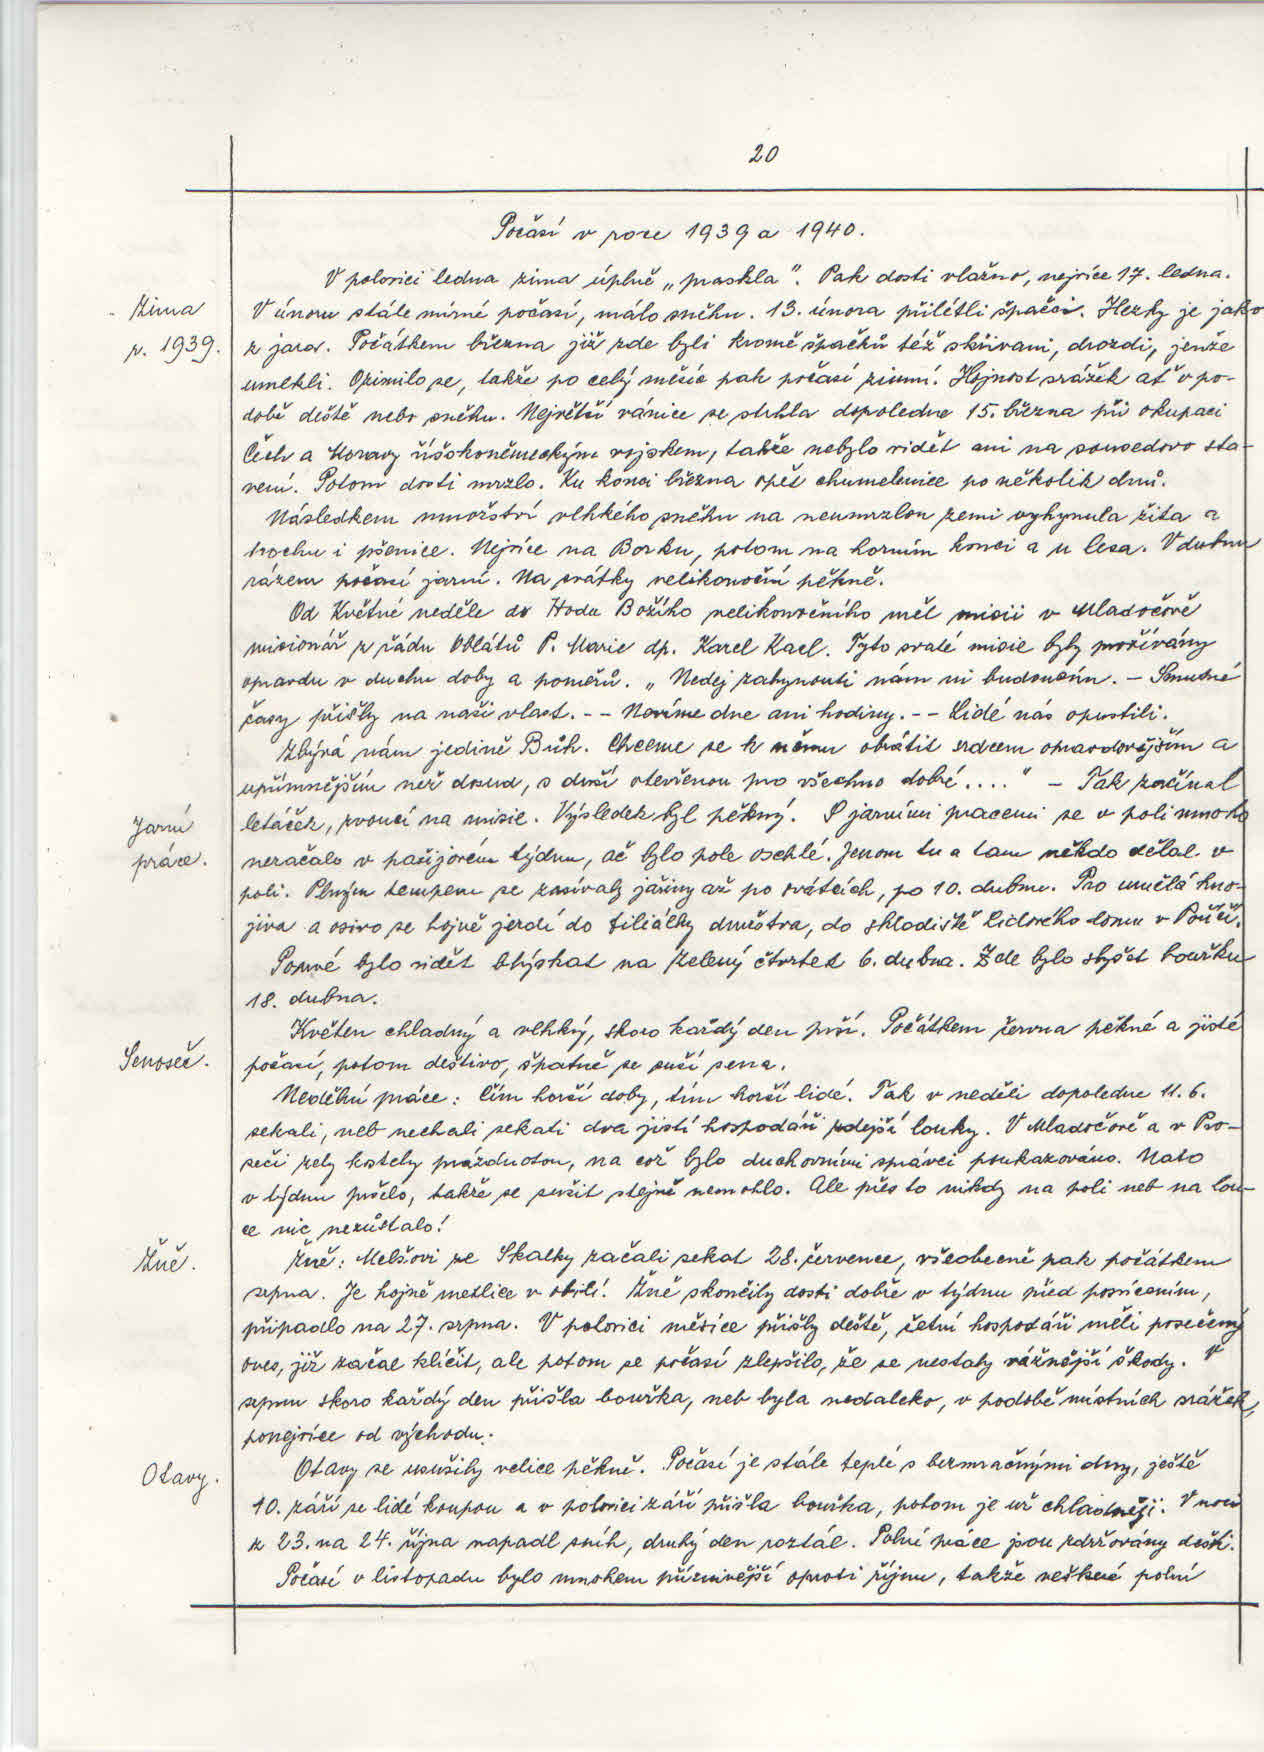 20
Počasí v roce 1939 a 1940.
V polovici ledna zima úplně „praskla". Pak dosti vlažno, nejvíce 17. ledna.
Zima
r. 1939.
V únoru stále mírné počasí, málo sněhu. 13. února přilétli špačci. Hezky je jako
z jara. Počátkem března již zde byli kromě špačků též skřivani, drozdi, jenže
umekli. Ozimilo se, takže po celý měsíc pak počasí zimní. Hojnost srážek ať v po-
době deště nebo sněhu. Největší vánice se strhla dopoledne 15. března při okupaci
Čech a Moravy říšskoněmeckým vojskem, takže nebylo vidět ani na sousedovo sta-
vení. Potom dosti mrzlo. Ku konci března opět chumelenice po několik dnů.
Následkem množství vlhkého sněhu na neumrzlou zemi vyhynula žita a
trochu i pšenice. Nejvíce na Borku, potom na horním konci a u lesa. V dubnu
rázem počasí jarní. Na svátky velikonoční pěkně.
Od Květné neděle do Hodu Božího velikonočního měl misii v Mladočově
misionář z řádu Oblátů P. Marie dp. Karel Kael. Tyto svaté misie byly prožívány
opravdu v duchu doby a poměrů. „Nedej zahynouti nám ni budoucím. - Smutné
časy přišly na naši vlast. - - Nevíme dne ani hodiny. - - Lidé nás opustili.
Zbývá nám jedině Bůh. Chceme se k němu obrátit srdcem opravdovějším a
upřímnějším než dosud, s duší otevřenou pro všechno dobré...." - Tak začínal
Jarní
práce.
letáček, zvoucí na misie. Výsledek byl pěkný. S jarními pracemi se v poli mnoho
nezačalo v pašijovém týdnu, ač bylo pole oschlé. Jenom tu a tam někdo dělal v
poli. Plným tempem se zasívaly jařiny až po svátcích, po 10. dubnu. Pro umělá hno-
jiva a osivo se hojně jezdí do filiálky družstva, do skladiště Lidového domu v Poříčí.
Poprvé bylo vidět blýskat na Zelený čtvrtek 6. dubna. Zde bylo slyšet bouřku
18. dubna.
Květen chladný a vlhký, skoro každý den prší. Počátkem června pěkné a jisté
Senoseč.
počasí, potom deštivo, špatně se suší sena.
Nedělní práce: Čím horší doby, tím horší lidé. Tak v neděli dopoledne 11. 6.
sekali, neb nechali sekati dva jistí hospodáři zdejší louky. V Mladočově a v Pro-
seči zely kostely prázdnotou, na což bylo duchovními správci poukazováno. Nato
v týdnu pršelo, takže se sušit stejně nemohlo. Ale přes to nikdy na poli neb na lou-
ce nic nezůstalo!
Žně.
Žně: Melšovi ze Skalky začali sekat 28. července, všeobecně pak počátkem
srpna. Je hojně metlice v obilí. Žně skončily dosti dobře v týdnu před posvícením,
připadlo na 27. srpna. V polovici měsíce přišly deště, četní hospodáři měli posečený
oves, již začal klíčit, ale potom se počasí zlepšilo, že se nestaly vážnější škody. V
srpnu skoro každý den přišla bouřka, neb byla nedaleko, v podobě místních srážek,
ponejvíce od východu.
Otavy.
Otavy se usušily velice pěkně. Počasí je stále teplé s bezmračnými dny, ještě
10. září se lidé koupou a v polovici září přišla bouřka, potom je už chladněji. V noci
z 23. na 24. října napadl sníh, druhý den roztál. Polní práce jsou zdržovány dešti.
Počasí v listopadu bylo mnohem příznivější oproti říjnu, takže veškeré polní